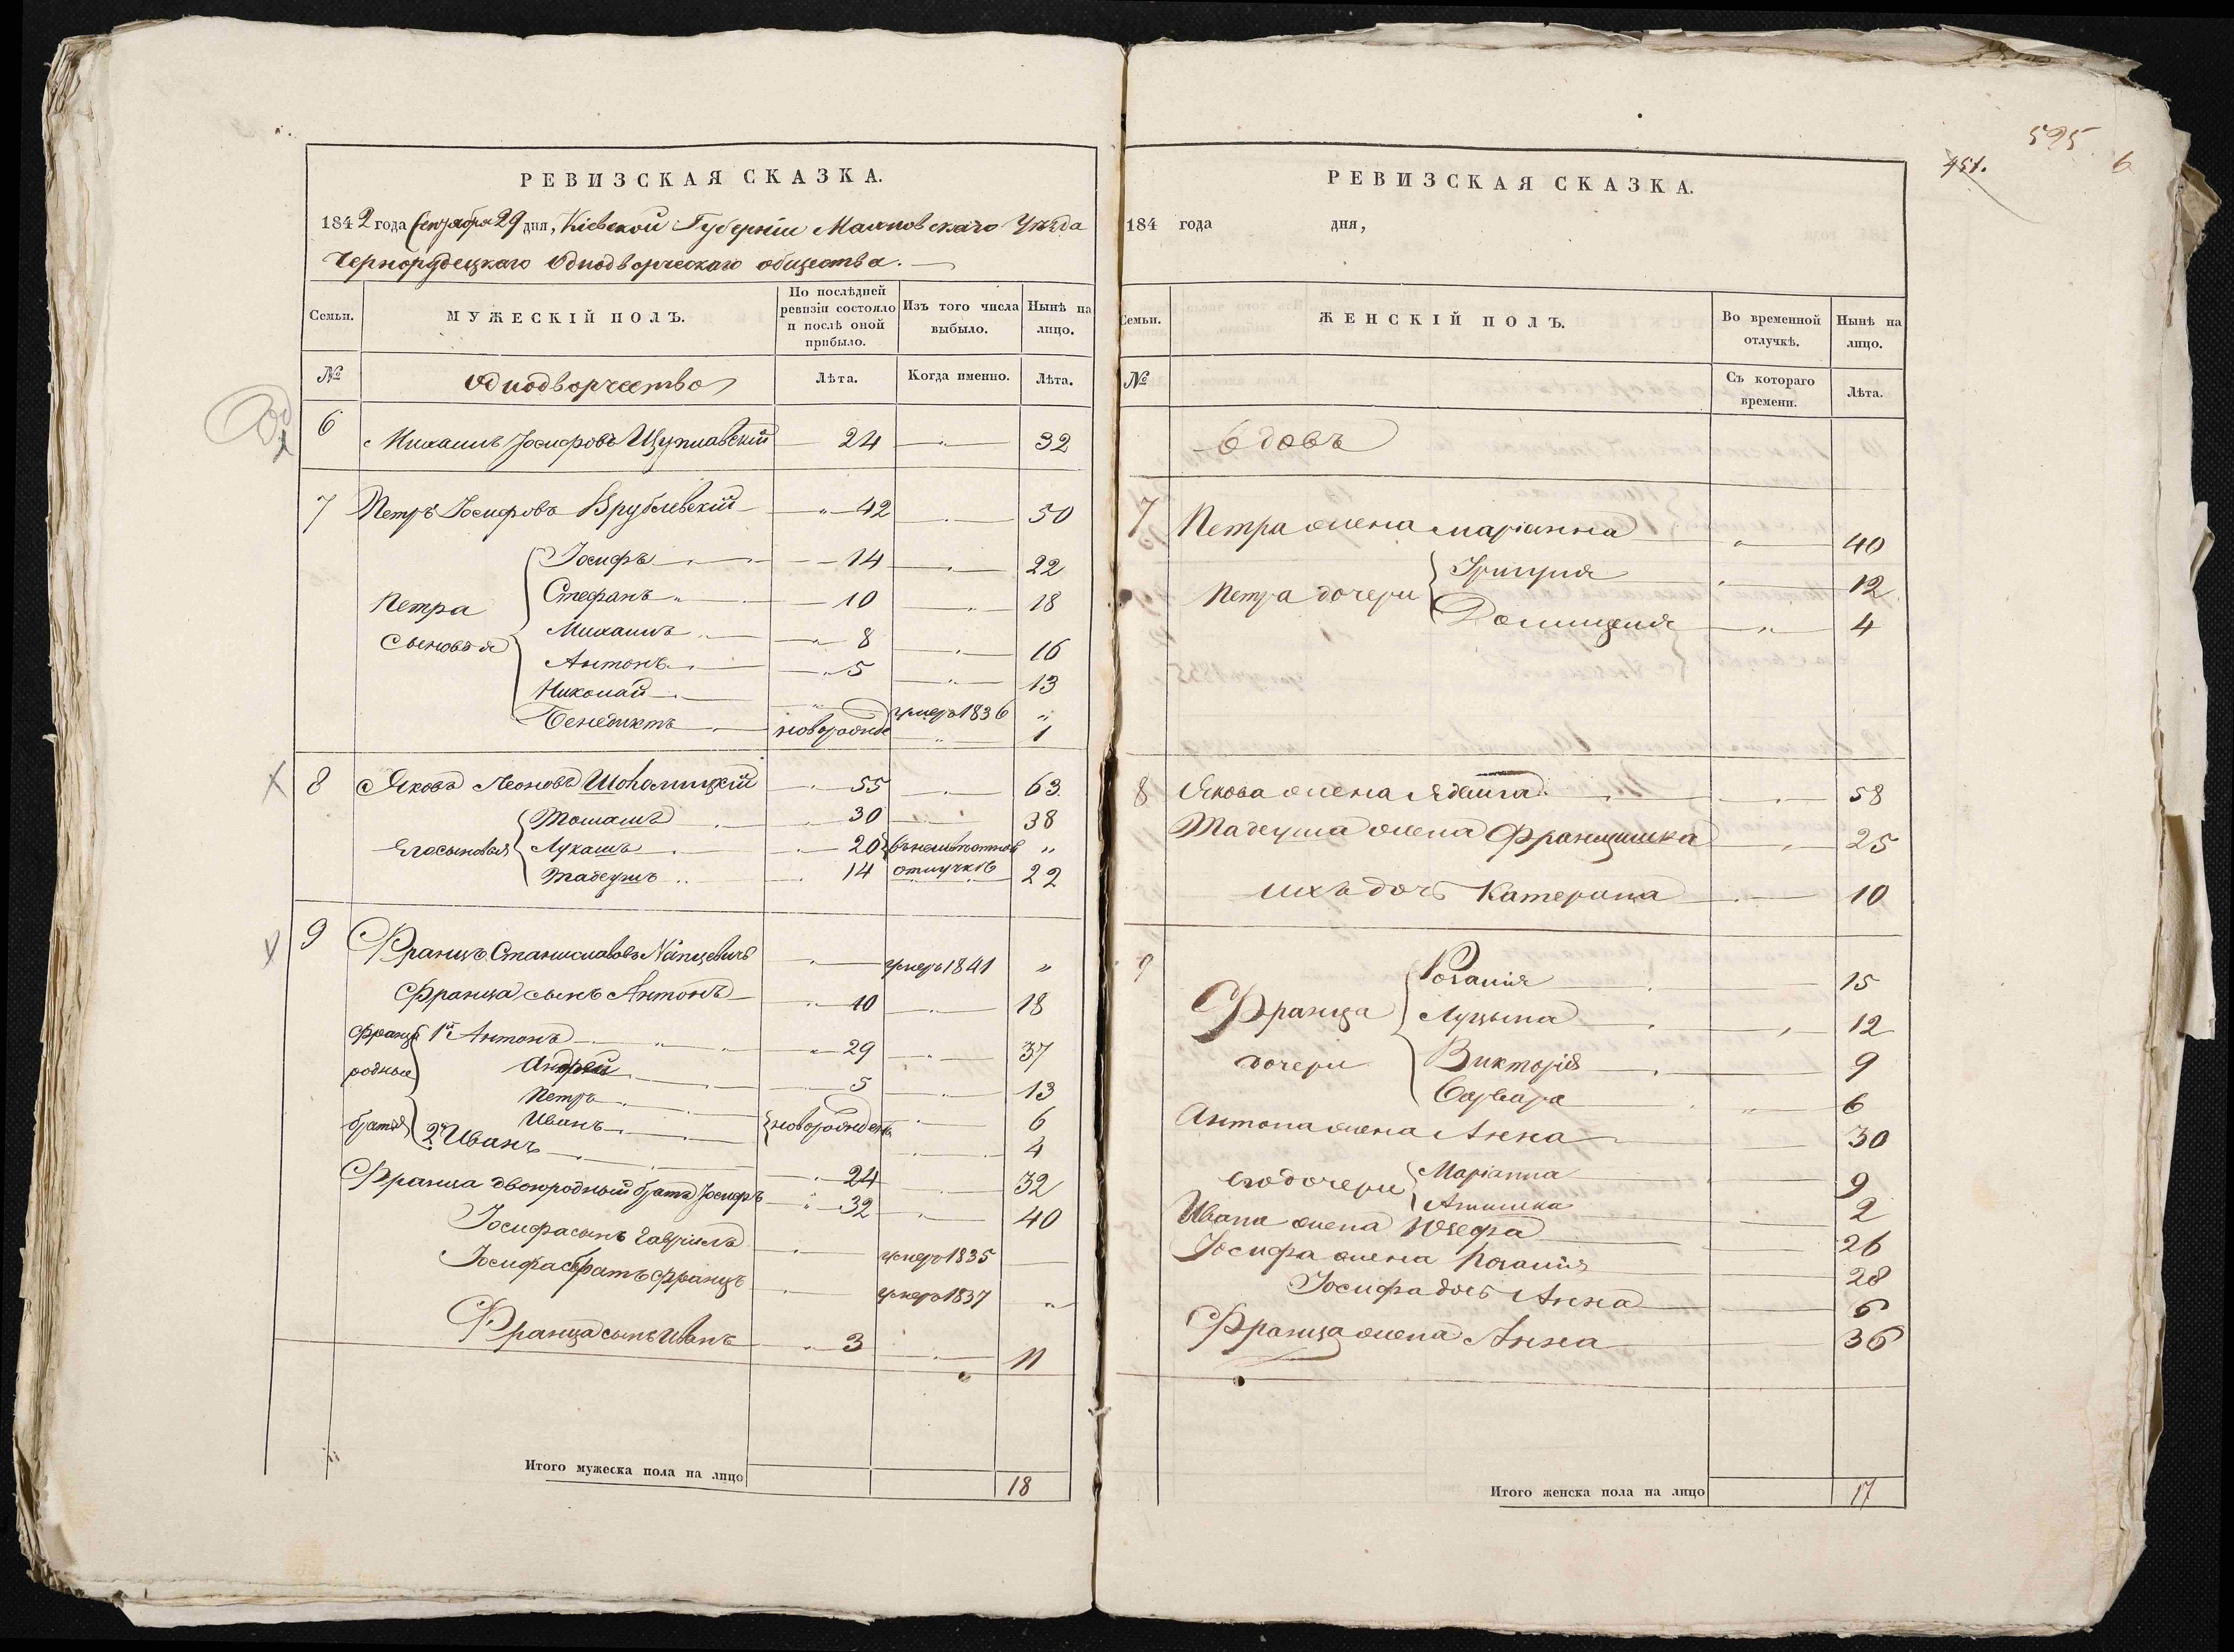 РЕВИЗСКАЯ СКАЗКА.
1842 года Сентября 29 дня, Кіевской Губерніи Махновскаго Уѣзда
Чернорудецкаго Однодворческаго общества.
Семьи.
МУЖЕСКІЙ ПОЛЪ.
По послѣдней ревизіи состояло и послѣ оной прибыло.
Изъ того числа выбыло.
Нынѣ на лицо.
№
Однодворчество
Лѣта.
Когда именно.
Лѣта.
6 Михаилъ Іосифовъ 24 32
7 Петръ Іосифовъ Врублевскій 42 50
Петра Сыновья
Іосифъ 14 22
Стефанъ 10 18
Михаилъ 8 16
Антонъ 5 13
Николай умеръ 1836 "
Бенедиктъ новорожде 1
8 Яковъ Леоновъ 55 63
Его сыновья
Томашъ 30 38
Лукашъ 20 "
отлучкѣ
Тадеушъ 14 22
9 Францъ Станиславовъ умеръ 1841 "
Франца сынъ Антонъ 10 18
Франца родные братья
1й Антонъ 29 37
Андрей 5 13
Петръ 6
Иванъ новорожденъ 4
2й Иванъ 24 32
Франца двоюродный братъ Іосифъ 32 40
Іосифа сынъ Гаврилъ умеръ 1835
Іосифа братъ Францъ умеръ 1837 "
Франца сынъ Иванъ 3 11
Итого мужеска пола на лицо 18
595
451.
6
РЕВИЗСКАЯ СКАЗКА.
184 года дня,
Семьи.
ЖЕНСКІЙ ПОЛЪ.
Во временной отлучкѣ.
Нынѣ на лицо.
№
Съ котораго времени.
Лѣта.
вдовъ
7 Петра жена Маріанна 40
Петра дочери
12
Домицеля 4
8 Якова жена Ядвига 58
Тадеуша жена Францишка 25
ихъ дочь Катерина 10
9 Франца дочери
Розалія 15
Луцына 12
Викторія 9
Варвара 6
Антона жена Анна 30
его дочери
Маріанна 9
2
Ивана жена Юзефа 26
Іосифа жена Розалія 28
Іосифа дочь Анна 6
Франца жена Анна 36
Итого женска пола на лицо 17